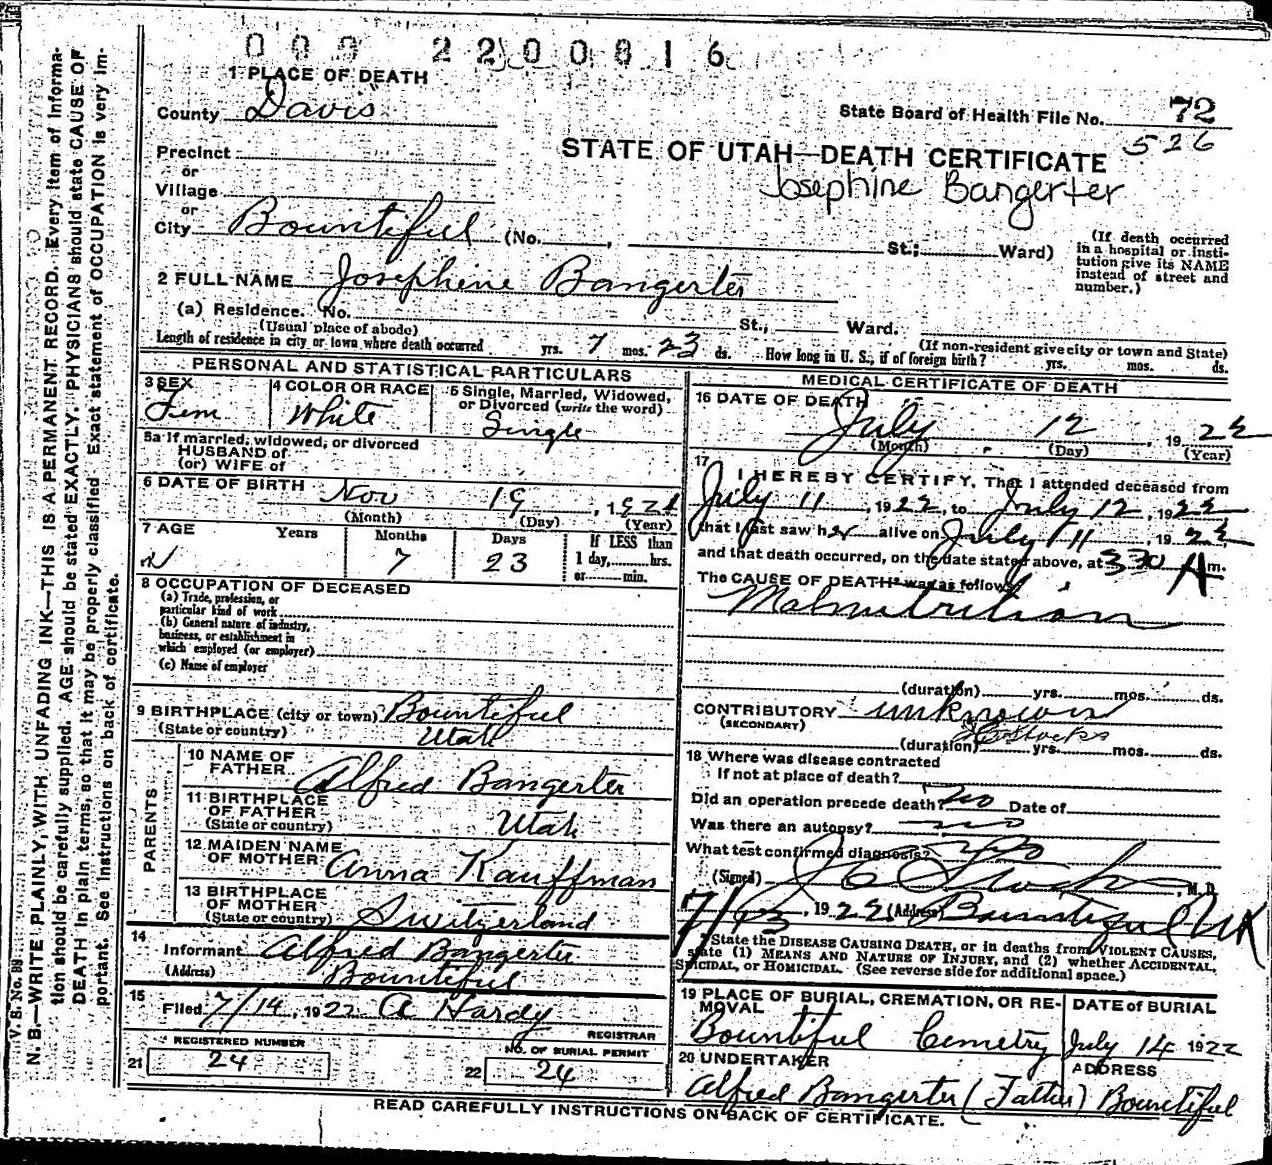 000 2200816
1 PLACE OF DEATH
County Davis
State Board of Health File No. 72
526
Precinct
or
Village
or
City Bountiful (No. , St.; Ward)
STATE OF UTAH—DEATH CERTIFICATE
Josephine Bangerter
(If death occurred in a hospital or institution give its NAME instead of street and number.)
2 FULL NAME Josephine Bangerter
(a) Residence. No. St., Ward.
(Usual place of abode) (If non-resident give city or town and State)
Length of residence in city or town where death occurred yrs. 7 mos. 23 ds. How long in U. S., if of foreign birth? yrs. mos. ds.
PERSONAL AND STATISTICAL PARTICULARS
3 SEX
Fem
4 COLOR OR RACE
White
5 Single, Married, Widowed, or Divorced (write the word)
Single
5a If married, widowed, or divorced
HUSBAND of
(or) WIFE of
6 DATE OF BIRTH Nov 19, 1921
(Month) (Day) (Year)
7 AGE Years Months Days If LESS than
7 23 1 day, hrs.
or min.
8 OCCUPATION OF DECEASED
(a) Trade, profession, or
particular kind of work
(b) General nature of industry,
business, or establishment in
which employed (or employer)
(c) Name of employer
9 BIRTHPLACE (city or town) Bountiful
(State or country) Utah
PARENTS
10 NAME OF
FATHER Alfred Bangerter
11 BIRTHPLACE
OF FATHER
(State or country) Utah
12 MAIDEN NAME
OF MOTHER Anna Kauffman
13 BIRTHPLACE
OF MOTHER
(State or country) Switzerland
14
Informant Alfred Bangerter
(Address) Bountiful
15
Filed 7/14, 1922 A Hardy
REGISTRAR
REGISTERED NUMBER
21 24
NO. OF BURIAL PERMIT
22 24
MEDICAL CERTIFICATE OF DEATH
16 DATE OF DEATH
July 12, 1922
(Month) (Day) (Year)
17
I HEREBY CERTIFY, That I attended deceased from
July 11, 1922, to July 12, 1922
that I last saw her alive on July 11, 1922,
and that death occurred, on the date stated above, at 330 A m.
The CAUSE OF DEATH was as follows:
Malnutrition
(duration) yrs. mos. ds.
CONTRIBUTORY unknown
(SECONDARY)
(duration) yrs. mos. ds.
18 Where was disease contracted
If not at place of death?
Did an operation precede death? no Date of
Was there an autopsy? no
What test confirmed diagnosis?
(Signed) , M. D.
7/13, 1922 (Address) Bountiful
State the DISEASE CAUSING DEATH, or in deaths from VIOLENT CAUSES,
state (1) MEANS AND NATURE OF INJURY, and (2) whether ACCIDENTAL,
SUICIDAL, or HOMICIDAL. (See reverse side for additional space.)
19 PLACE OF BURIAL, CREMATION, OR REMOVAL
Bountiful Cemetry
DATE OF BURIAL
July 14 1922
20 UNDERTAKER
Alfred Bangerter (Father)
ADDRESS
Bountiful
READ CAREFULLY INSTRUCTIONS ON BACK OF CERTIFICATE.
V. S. No.
N. B.—WRITE PLAINLY, WITH UNFADING INK—THIS IS A PERMANENT RECORD. Every item of informa-
tion should be carefully supplied. AGE should be stated EXACTLY. PHYSICIANS should state CAUSE OF
DEATH in plain terms, so that it may be properly classified. Exact statement of OCCUPATION is very im-
portant. See instructions on back of certificate.